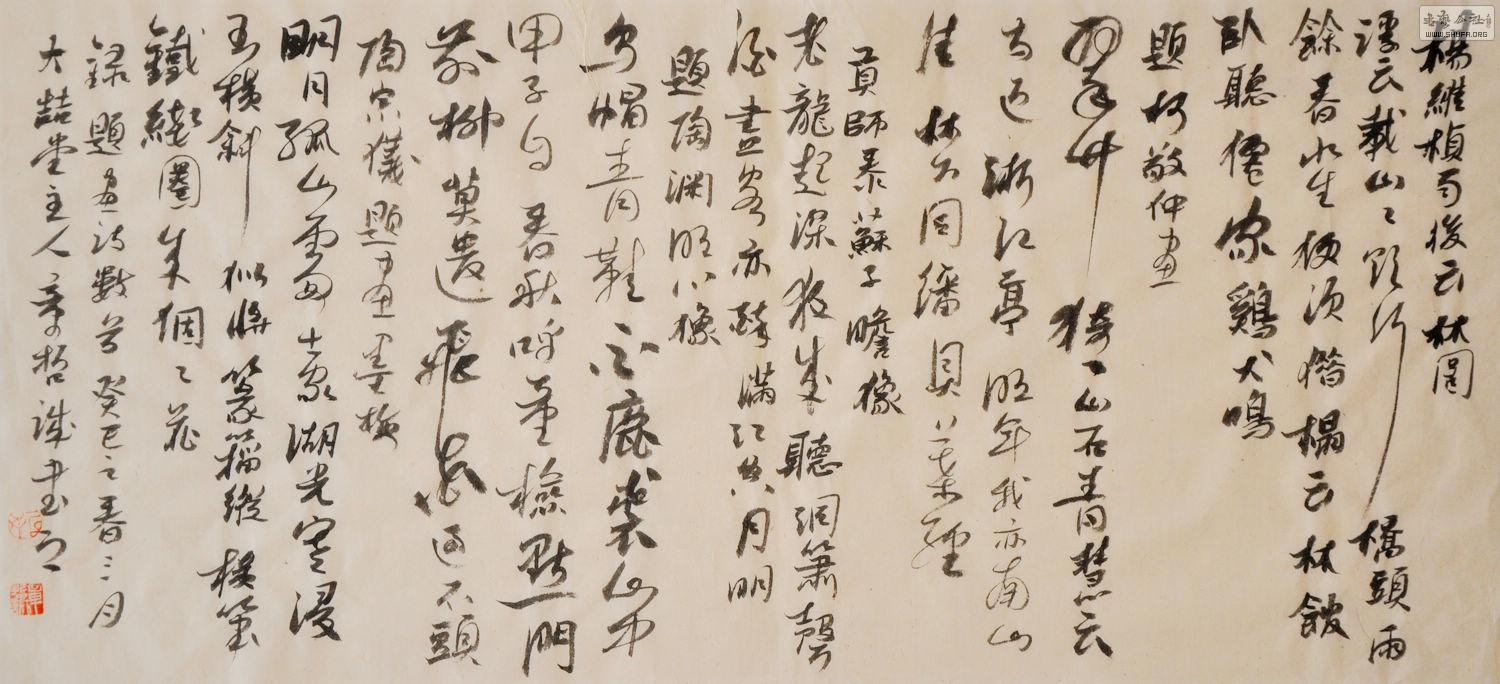 楊維楨雨後云林圖
浮云載山山欲行橋頭雨
餘春水生便須借榻云林館
臥聽僊家鷄犬鳴
題柯敬仲畫
翠竹猗猗山石青慧云
寺近浙江亭明年我亦南山
住林下同繙貝葉經
貢師泰蘇子瞻像
老龍起深夜來聽洞簫聲
酒盡客亦醉滿江空月明
題陶淵明小像
烏帽青鞵白鹿裘山中
甲子自春秋呼童檢點門
前柳莫遣飛花過石頭
陶宗儀題畫墨梅
明月孤山處士家湖光寒浸
玉橫斜似將篆籀縱橫筆
鐵綫圈成個個花
錄題畫詩數首癸巳之春三月
大喆堂主人章哲诚书
書藝公社
WWW.SHUFA.ORG